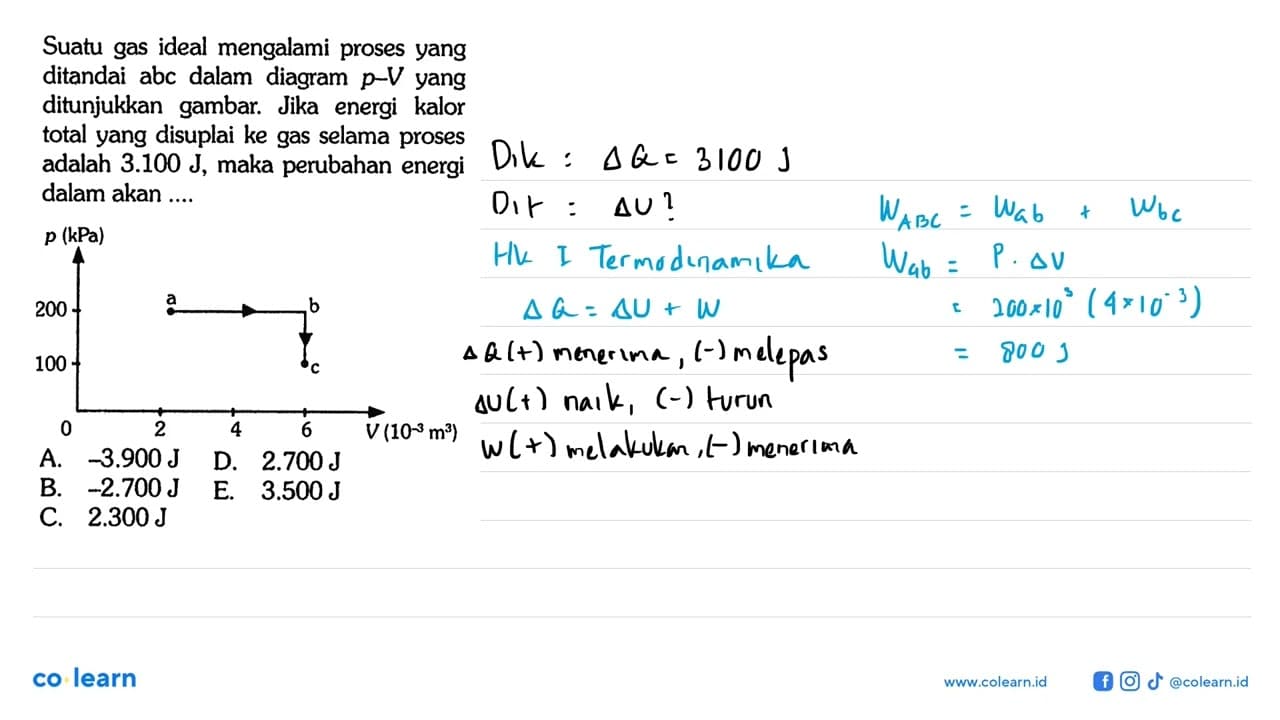 Suatu gas ideal mengalami proses yang
ditandai abc dalam diagram p–V yang
ditunjukkan gambar. Jika energi kalor
total yang disuplai ke gas selama proses
adalah 3.100 J, maka perubahan energi
dalam akan ....
p (kPa)
200
100
a
b
c
0 2 4 6 V (10⁻³ m³)
A. –3.900 J D. 2.700 J
B. –2.700 J E. 3.500 J
C. 2.300 J
Dik : ΔQ = 3100 J
Dit : ΔU?
Hk I Termodinamika
ΔQ = ΔU + W
ΔQ (+) menerima, (-) melepas
ΔU (+) naik, (-) turun
W (+) melakukan, (-) menerima
W_ABC = W_ab + W_bc
W_ab = P . ΔV
= 200×10³ (4×10⁻³)
= 800 J
co learn
www.colearn.id
@colearn.id